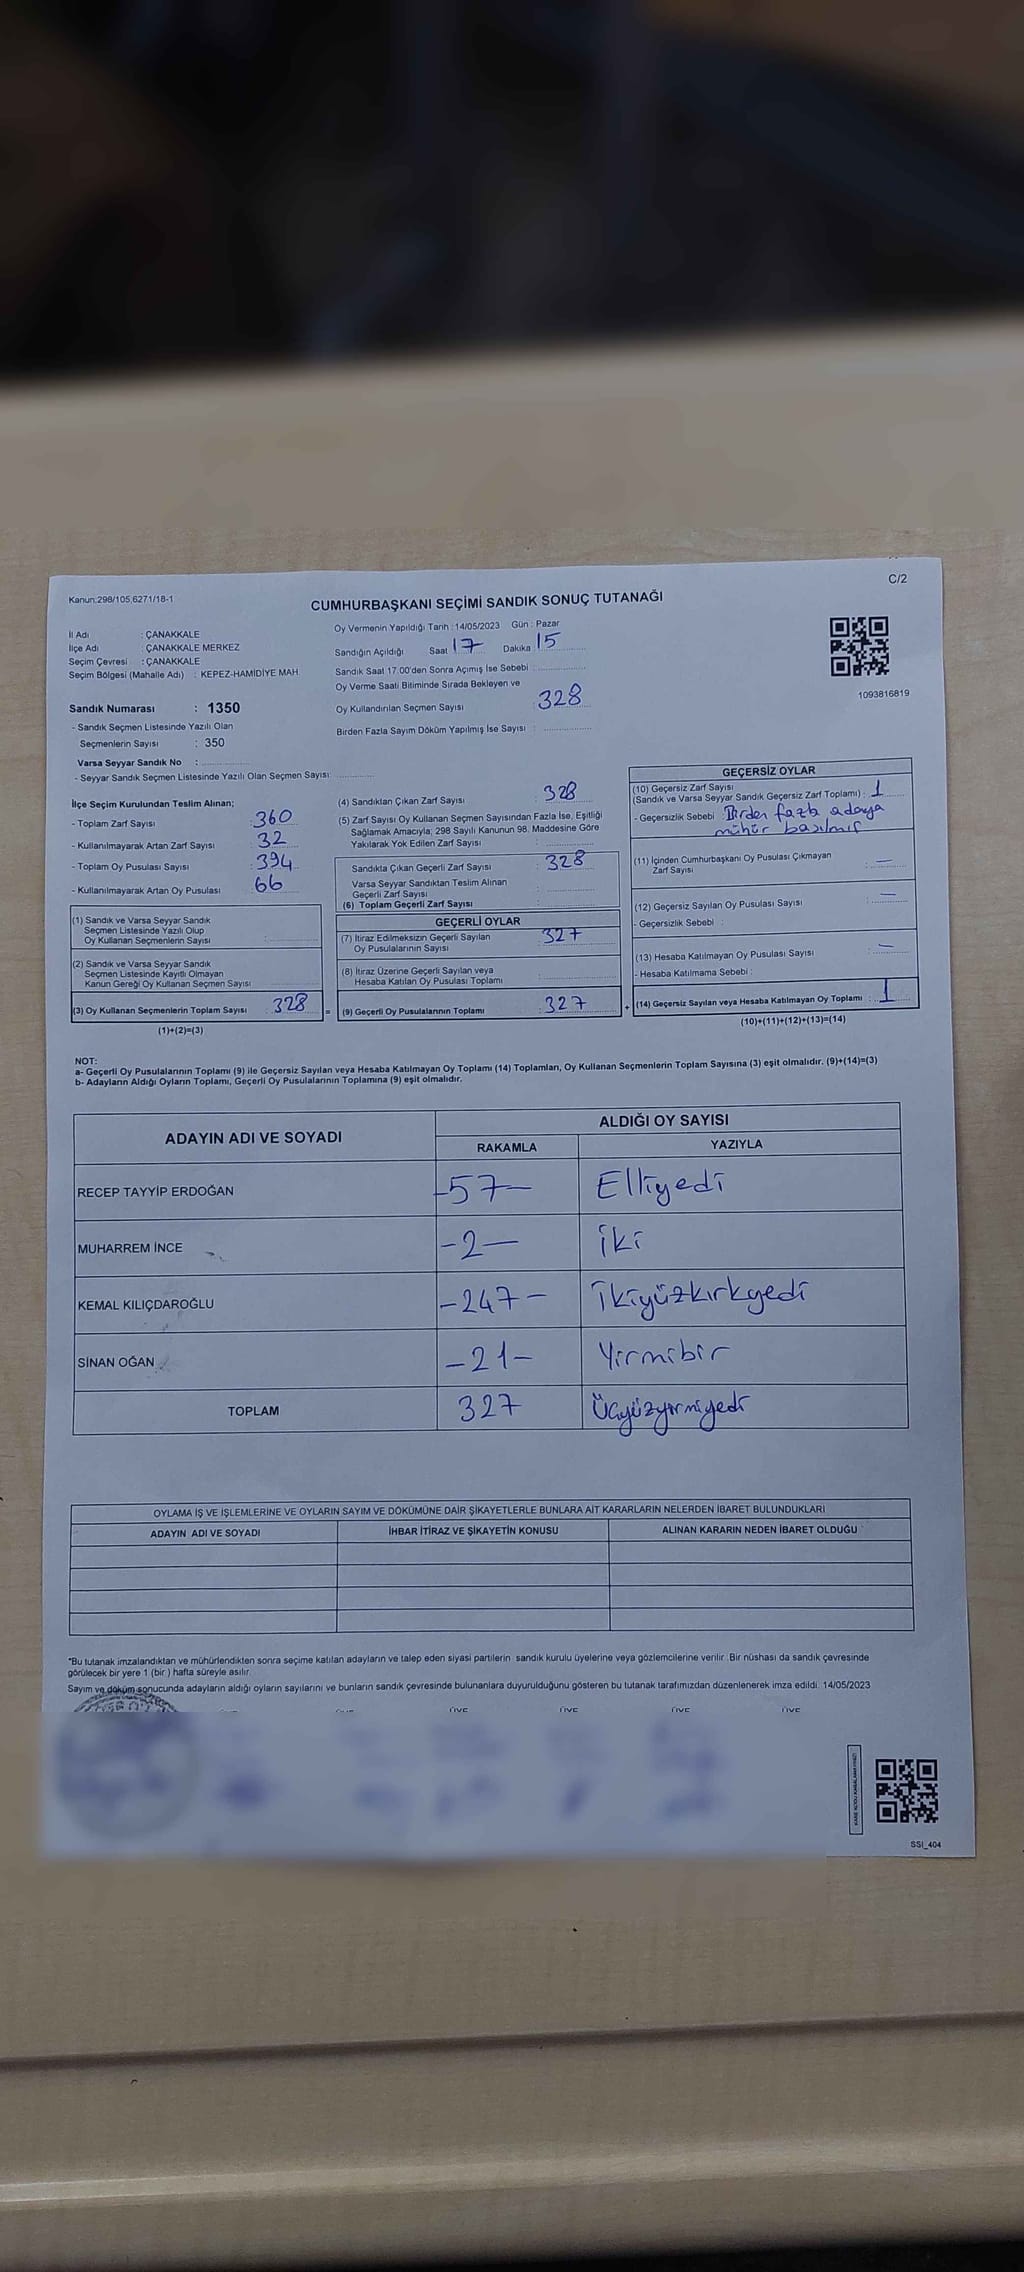 C/2
Kanun:298/105,6271/18-1
CUMHURBAŞKANI SEÇİMİ SANDIK SONUÇ TUTANAĞI
İl Adı : ÇANAKKALE
İlçe Adı : ÇANAKKALE MERKEZ
Seçim Çevresi : ÇANAKKALE
Seçim Bölgesi (Mahalle Adı) : KEPEZ-HAMİDİYE MAH
Sandık Numarası : 1350
- Sandık Seçmen Listesinde Yazılı Olan
Seçmenlerin Sayısı : 350
Varsa Seyyar Sandık No :
- Seyyar Sandık Seçmen Listesinde Yazılı Olan Seçmen Sayısı:
Oy Vermenin Yapıldığı Tarih : 14/05/2023 Gün : Pazar
Sandığın Açıldığı Saat 17 Dakika 15
Sandık Saat 17.00'den Sonra Açımış İse Sebebi :
Oy Verme Saati Bitiminde Sırada Bekleyen ve
Oy Kullandırılan Seçmen Sayısı : 328
Birden Fazla Sayım Döküm Yapılmış İse Sayısı :
1093816819
İlçe Seçim Kurulundan Teslim Alınan;
- Toplam Zarf Sayısı : 360
- Kullanılmayarak Artan Zarf Sayısı : 32
- Toplam Oy Pusulası Sayısı : 394
- Kullanılmayarak Artan Oy Pusulası : 66
(1) Sandık ve Varsa Seyyar Sandık
Seçmen Listesinde Yazılı Olup
Oy Kullanan Seçmenlerin Sayısı :
(2) Sandık ve Varsa Seyyar Sandık
Seçmen Listesinde Kayıtlı Olmayan
Kanun Gereği Oy Kullanan Seçmen Sayısı :
(3) Oy Kullanan Seçmenlerin Toplam Sayısı : 328
(1)+(2)=(3)
(4) Sandıktan Çıkan Zarf Sayısı : 328
(5) Zarf Sayısı Oy Kullanan Seçmen Sayısından Fazla İse, Eşitliği
Sağlamak Amacıyla; 298 Sayılı Kanunun 98. Maddesine Göre
Yakılarak Yok Edilen Zarf Sayısı :
Sandıkta Çıkan Geçerli Zarf Sayısı : 328
Varsa Seyyar Sandıktan Teslim Alınan
Geçerli Zarf Sayısı :
(6) Toplam Geçerli Zarf Sayısı :
GEÇERLİ OYLAR
(7) İtiraz Edilmeksizin Geçerli Sayılan
Oy Pusulalarının Sayısı : 327
(8) İtiraz Üzerine Geçerli Sayılan veya
Hesaba Katılan Oy Pusulası Toplamı :
(9) Geçerli Oy Pusulalarının Toplamı : 327
= +
GEÇERSİZ OYLAR
(10) Geçersiz Zarf Sayısı
(Sandık ve Varsa Seyyar Sandık Geçersiz Zarf Toplamı) : 1
- Geçersizlik Sebebi : Birden fazla adaya
mühür basılmış
(11) İçinden Cumhurbaşkanı Oy Pusulası Çıkmayan
Zarf Sayısı : —
(12) Geçersiz Sayılan Oy Pusulası Sayısı : —
- Geçersizlik Sebebi :
(13) Hesaba Katılmayan Oy Pusulası Sayısı : —
- Hesaba Katılmama Sebebi :
(14) Geçersiz Sayılan veya Hesaba Katılmayan Oy Toplamı : 1
(10)+(11)+(12)+(13)=(14)
NOT:
a- Geçerli Oy Pusulalarının Toplamı (9) ile Geçersiz Sayılan veya Hesaba Katılmayan Oy Toplamı (14) Toplamları, Oy Kullanan Seçmenlerin Toplam Sayısına (3) eşit olmalıdır. (9)+(14)=(3)
b- Adayların Aldığı Oyların Toplamı, Geçerli Oy Pusulalarının Toplamına (9) eşit olmalıdır.
ADAYIN ADI VE SOYADI ALDIĞI OY SAYISI
RAKAMLA YAZIYLA
RECEP TAYYİP ERDOĞAN -57- Elliyedi
MUHARREM İNCE -2- iki
KEMAL KILIÇDAROĞLU -247- İkiyüzkırkyedi
SİNAN OĞAN -21- Yirmibir
TOPLAM 327 Üçyüzyirmiyedi
OYLAMA İŞ VE İŞLEMLERİNE VE OYLARIN SAYIM VE DÖKÜMÜNE DAİR ŞİKAYETLERLE BUNLARA AİT KARARLARIN NELERDEN İBARET BULUNDUKLARI
ADAYIN ADI VE SOYADI İHBAR İTİRAZ VE ŞİKAYETİN KONUSU ALINAN KARARIN NEDEN İBARET OLDUĞU
*Bu tutanak imzalandıktan ve mühürlendikten sonra seçime katılan adayların ve talep eden siyasi partilerin sandık kurulu üyelerine veya gözlemcilerine verilir. Bir nüshası da sandık çevresinde
görülecek bir yere 1 (bir) hafta süreyle asılır.
Sayım ve döküm sonucunda adayların aldığı oyların sayılarını ve bunların sandık çevresinde bulunanlara duyurulduğunu gösteren bu tutanak tarafımızdan düzenlenerek imza edildi. 14/05/2023
ÜYE ÜYE ÜYE ÜYE ÜYE
SSI_404